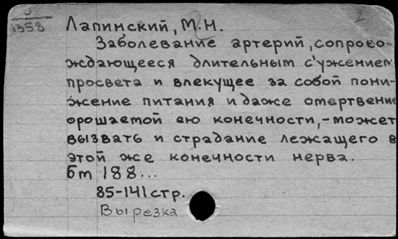 1358
Лапинский, М.Н.
Заболевание артерий, сопрово-
ждающееся длительным с'ужением
просвета и влекущее за собой пони-
жение питания и даже омертвение
орошаемой ею конечности, - может
вызвать и страдание лежащего в
этой же конечности нерва.
бт 188...
85-141 стр.
Вырезка